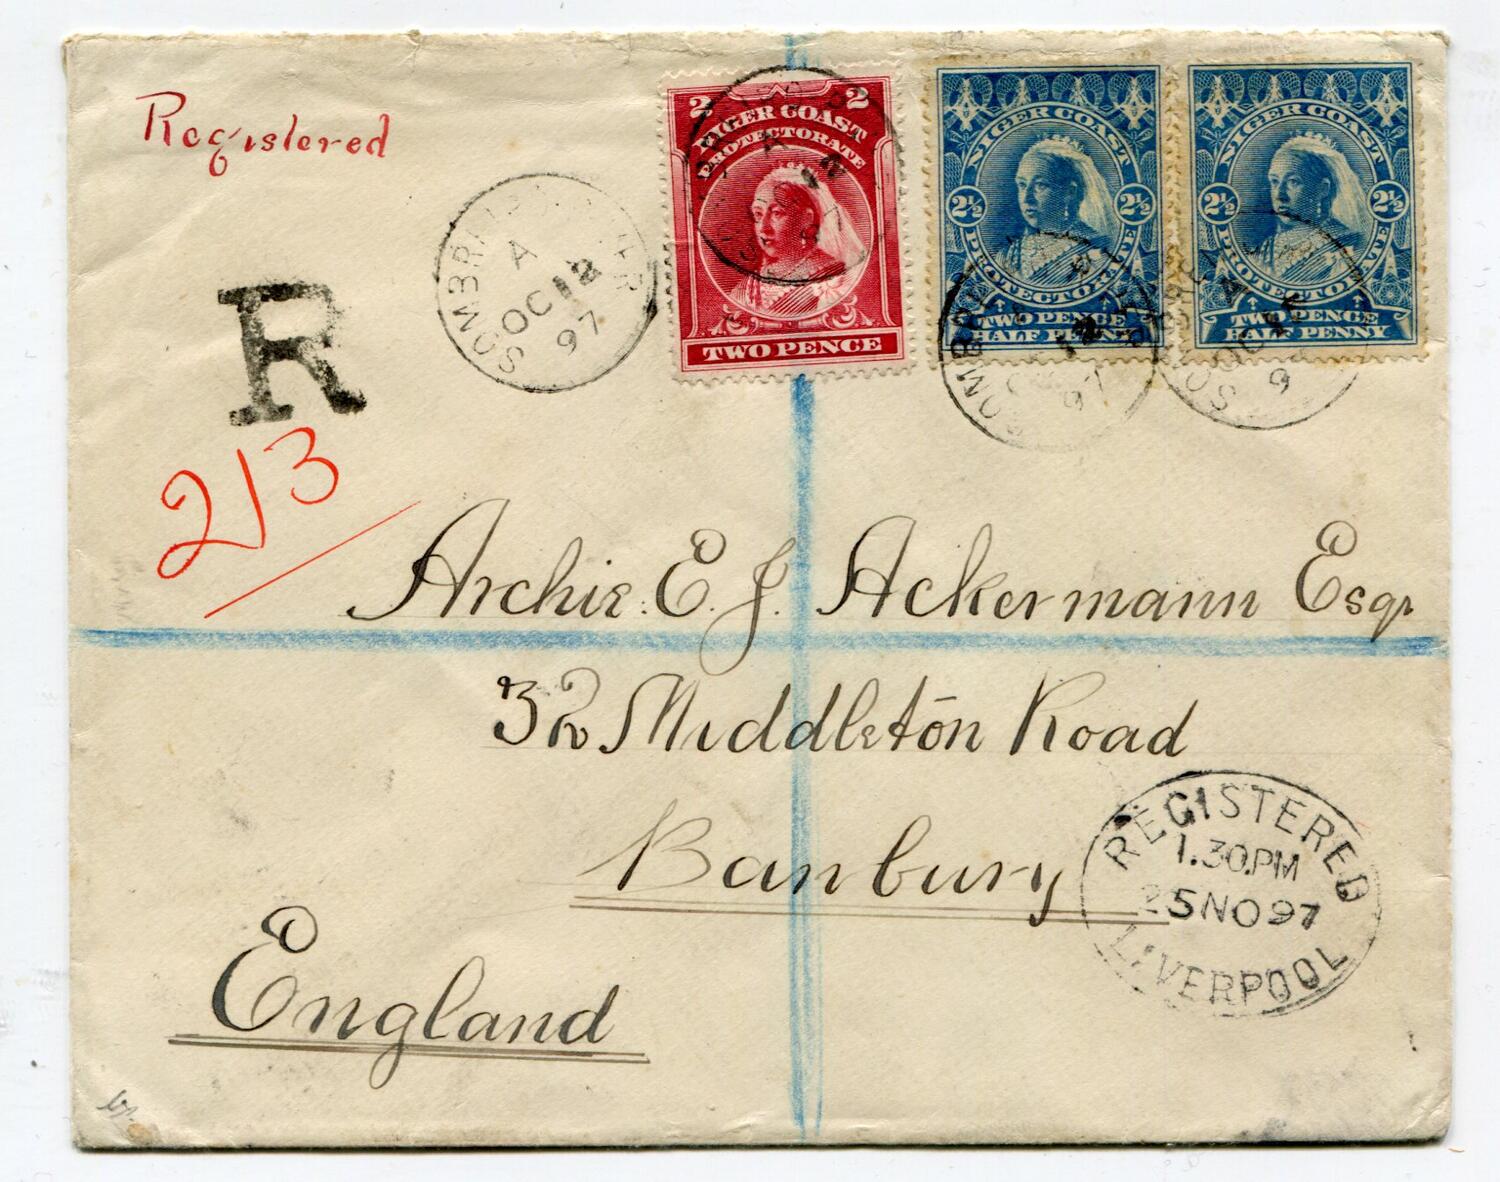 Registered
R
213
2 2
NIGER COAST
PROTECTORATE
TWO PENCE
NIGER COAST
2½ 2½
PROTECTORATE
TWO PENCE
HALF PENNY
NIGER COAST
2½ 2½
PROTECTORATE
TWO PENCE
HALF PENNY
SOMBREIRO RIVER
A
OC 12
97
Archie. E. J. Ackermann Esqr
32 Middleton Road
Banbury
England
REGISTERED
1.30.PM
25 NO 97
LIVERPOOL